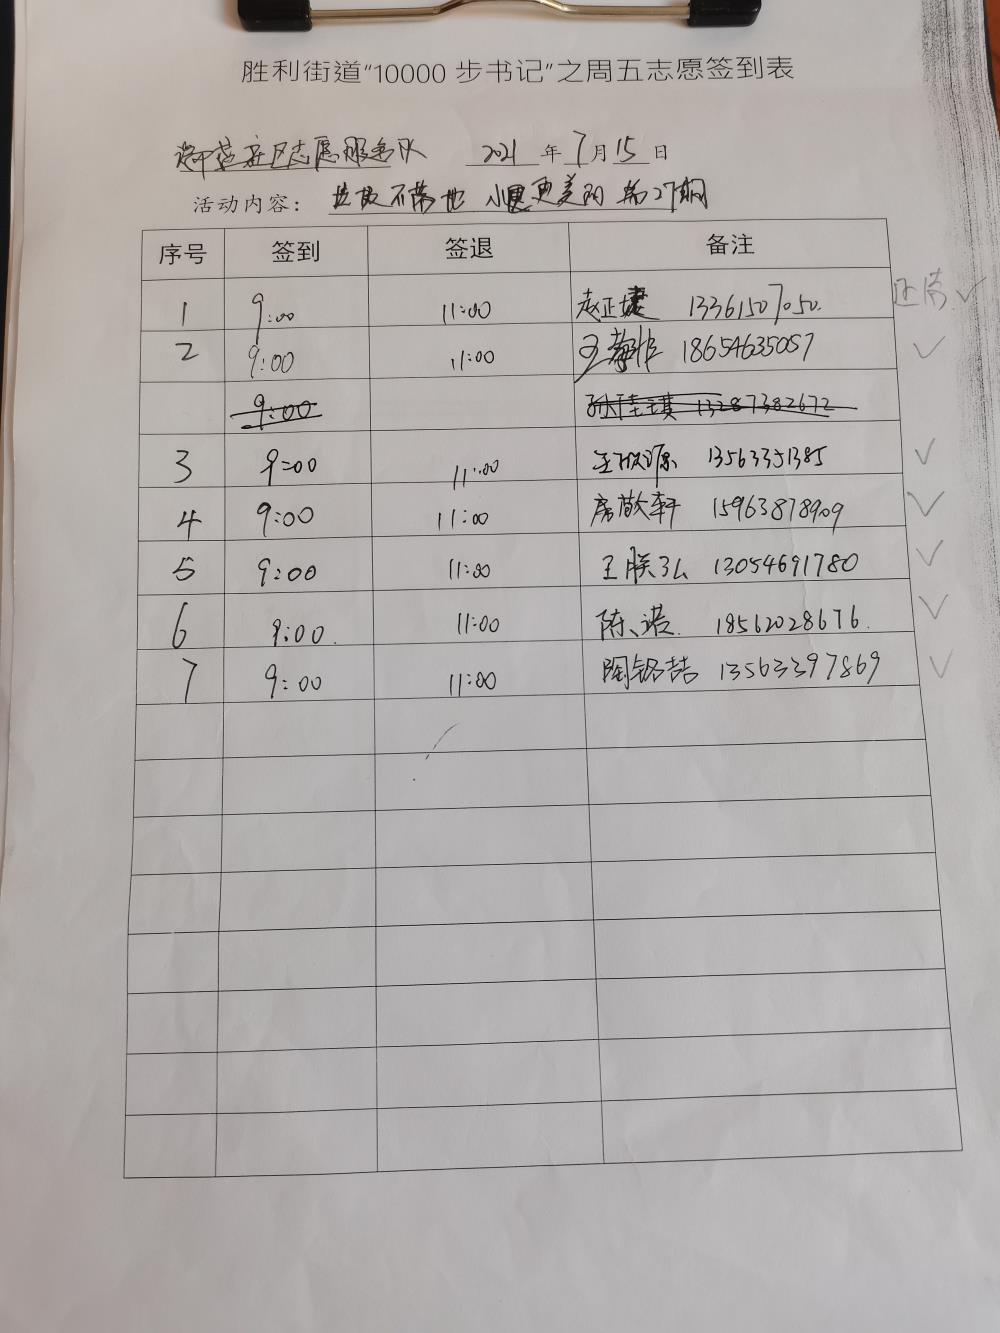 胜利街道“10000 步书记”之周五志愿签到表
社区志愿服务队 2021 年 7 月 15 日
活动内容： 垃圾不落地 小区更美丽 第27期
序号 签到 签退 备注
1 9:00 11:00 赵正捷 13361507050.
2 9:00 11:00 王 18654635057
9:00 13287382672
3 9:00 11:00 王 13563351385
4 9:00 11:00 席敬轩 15963878909
5 9:00 11:00 王朕弘 13054691780
6 9:00. 11:00 陈诺. 18562028676.
7 9:00 11:00 陶铭喆 13563397869